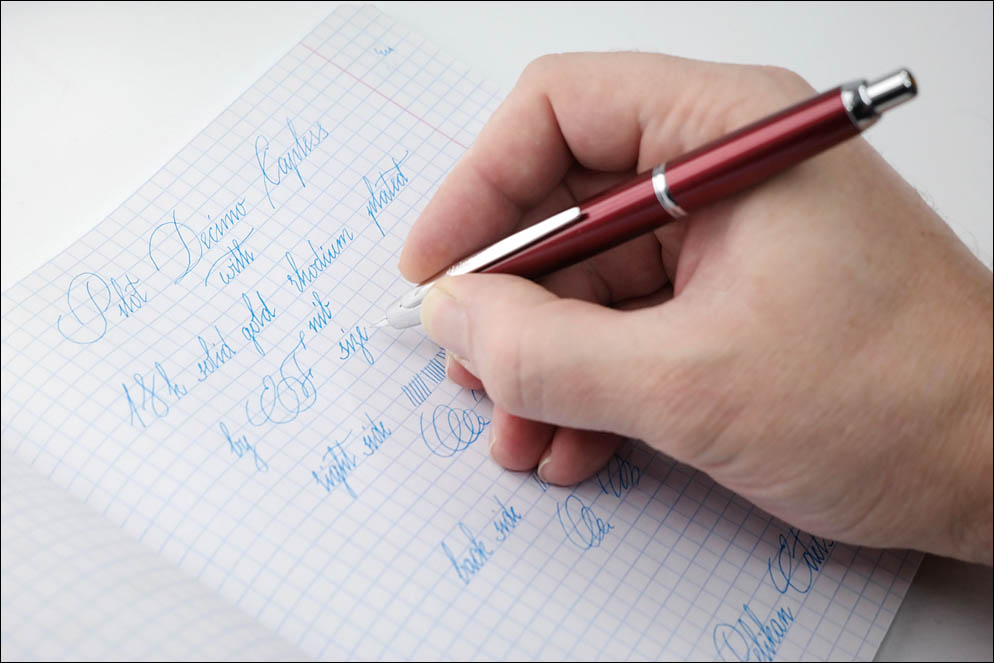 Pilot Decimo Capless
with
18k solid gold rhodium plated
by EF nib
size
right side
back side
Pelikan